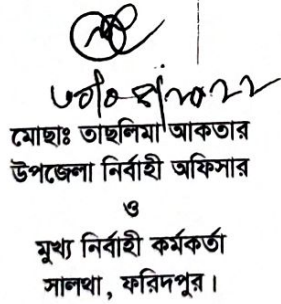 মোছাঃ তাছলিমা আকতার
উপজেলা নির্বাহী অফিসার
ও
মুখ্য নির্বাহী কর্মকর্তা
সালথা, ফরিদপুর।